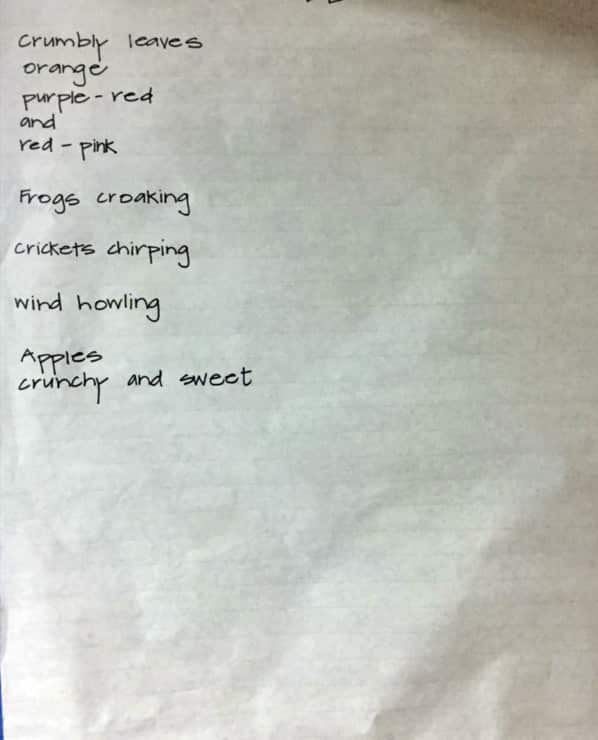 crumbly leaves
orange
purple-red
and
red-pink
Frogs croaking
crickets chirping
wind howling
Apples
crunchy and sweet